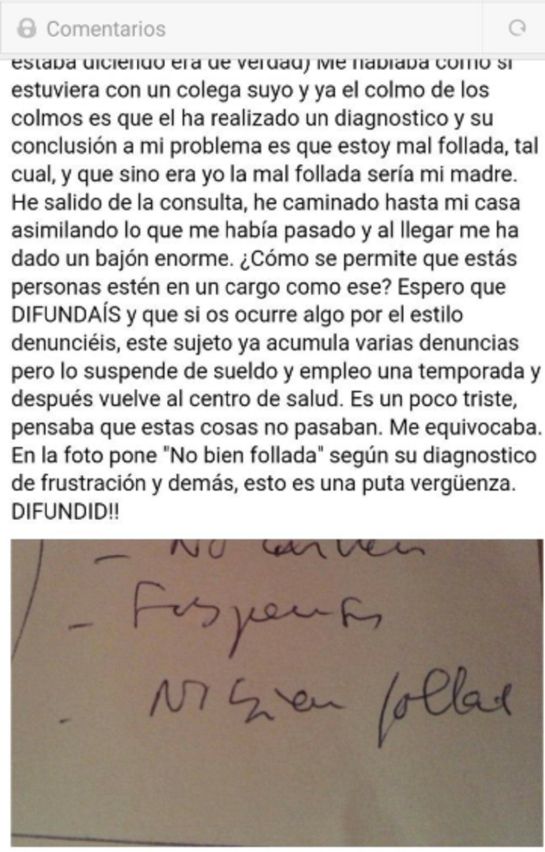 Comentarios
estaba diciendo era de verdad) Me hablaba como si
estuviera con un colega suyo y ya el colmo de los
colmos es que el ha realizado un diagnostico y su
conclusión a mi problema es que estoy mal follada, tal
cual, y que sino era yo la mal follada sería mi madre.
He salido de la consulta, he caminado hasta mi casa
asimilando lo que me había pasado y al llegar me ha
dado un bajón enorme. ¿Cómo se permite que estás
personas estén en un cargo como ese? Espero que
DIFUNDAÍS y que si os ocurre algo por el estilo
denunciéis, este sujeto ya acumula varias denuncias
pero lo suspende de sueldo y empleo una temporada y
después vuelve al centro de salud. Es un poco triste,
pensaba que estas cosas no pasaban. Me equivocaba.
En la foto pone "No bien follada" según su diagnostico
de frustración y demás, esto es una puta vergüenza.
DIFUNDID!!
- No
-
- bien follad